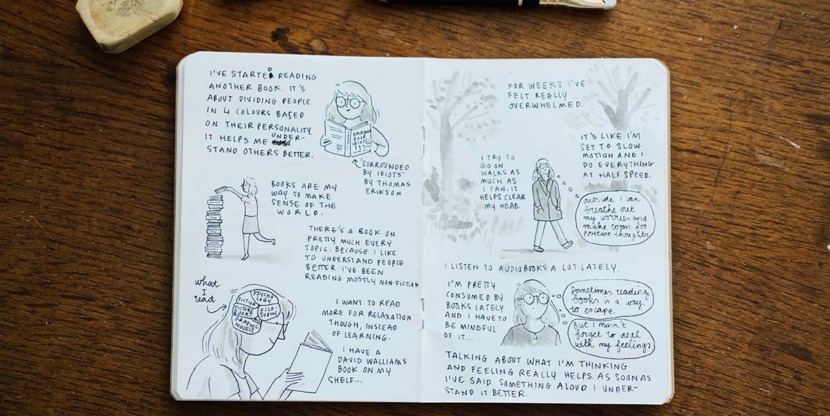 I'VE STARTED READING
ANOTHER BOOK. IT'S
ABOUT DIVIDING PEOPLE
IN 4 COLOURS BASED
ON THEIR PERSONALITY.
IT HELPS ME UNDER-
STAND OTHERS BETTER.
'SURROUNDED
BY IDIOTS'
BY THOMAS
ERIKSON
BOOKS ARE MY
WAY TO MAKE
SENSE OF THE
WORLD.
THERE'S A BOOK ON
PRETTY MUCH EVERY
TOPIC. BECAUSE I LIKE
TO UNDERSTAND PEOPLE
BETTER I'VE BEEN
READING MOSTLY NON-FICTION
what
I
read
PSYCHO
LOGY
FICTION
PICTURE
BOOKS
GRAPHIC
NOVELS
I WANT TO READ
MORE FOR RELAXATION
THOUGH, INSTEAD
OF LEARNING.
I HAVE A
DAVID WALLIAMS
BOOK ON MY
SHELF...
FOR WEEKS I'VE
FELT REALLY
OVERWHELMED.
IT'S LIKE I'M
SET TO SLOW
MOTION AND I
DO EVERYTHING
AT HALF SPEED.
I TRY TO
GO ON
WALKS AS
MUCH AS
I CAN. IT
HELPS CLEAR
MY HEAD.
outside I can
breathe out
my worries and
make room for
positive thoughts
I LISTEN TO AUDIOBOOKS A LOT LATELY.
I'M PRETTY
CONSUMED BY
BOOKS LATELY
AND I HAVE TO
BE MINDFUL
OF IT...
Sometimes reading
books is a way
to escape.
But I mustn't
forget to deal
with my feelings
TALKING ABOUT WHAT I'M THINKING
AND FEELING REALLY HELPS. AS SOON AS
I'VE SAID SOMETHING ALOUD I UNDER-
STAND IT BETTER.